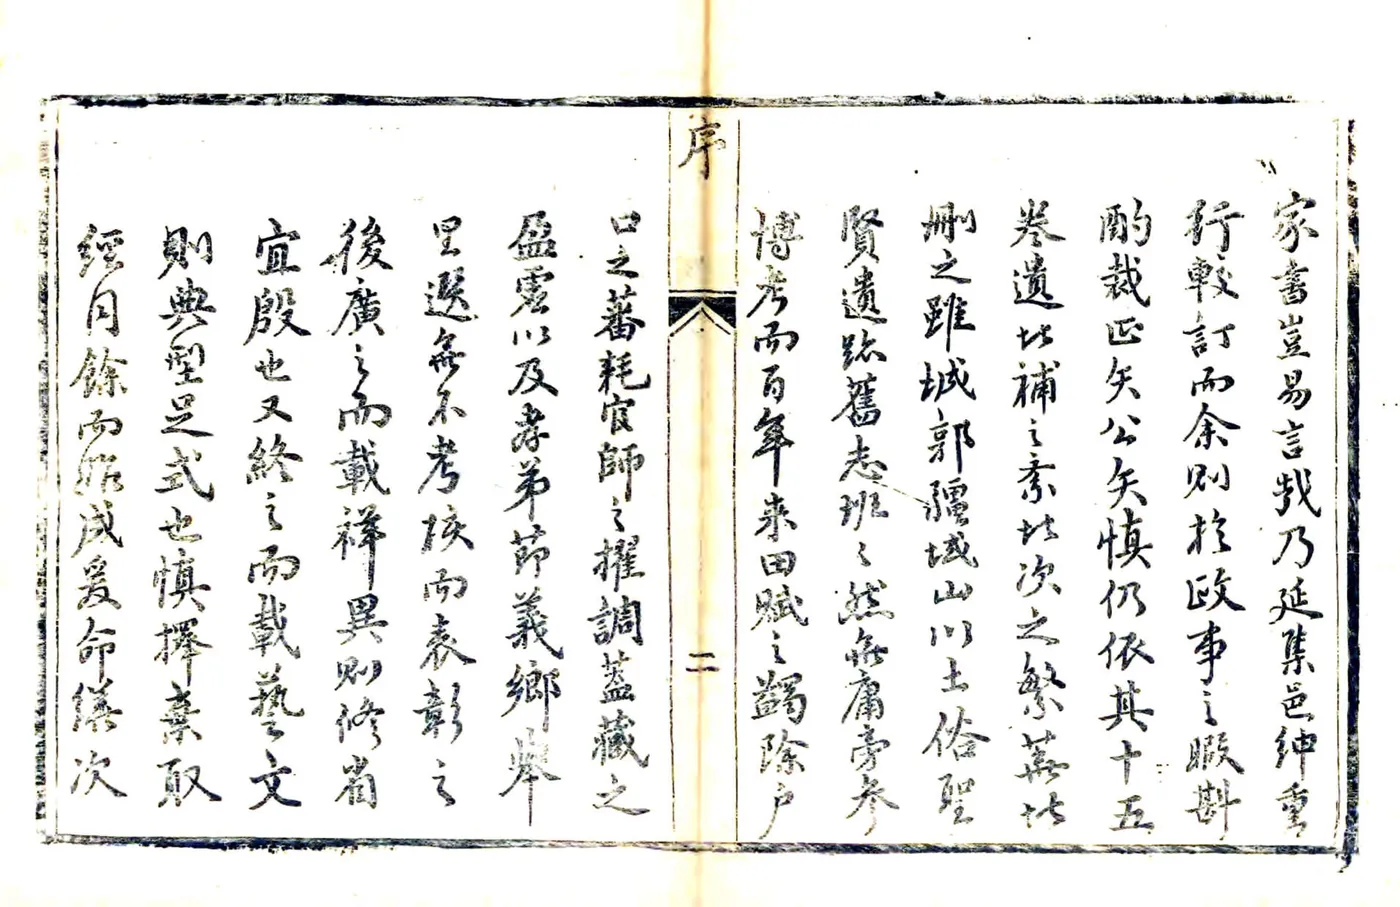 家書豈易言哉乃延集邑紳重
行較訂而余則於政事之暇斟
酌裁正矣公矣慎仍依其十五
卷遺比補之紊比次之繁蕪比
刪之雖城郭疆域山川土俗聖
賢遺跡舊志班之然無庸旁參
博考而百年來田賦之蠲除戶
序
二
口之蕃耗官師之擢調蓋藏之
盈虛以及孝弟節義鄉舉
里選無不考核而表彰之
後廣之而載祥異則修省
宜殷也又終之而載藝文
則典型足式也慎擇棄取
經月餘而始成爰命繕次